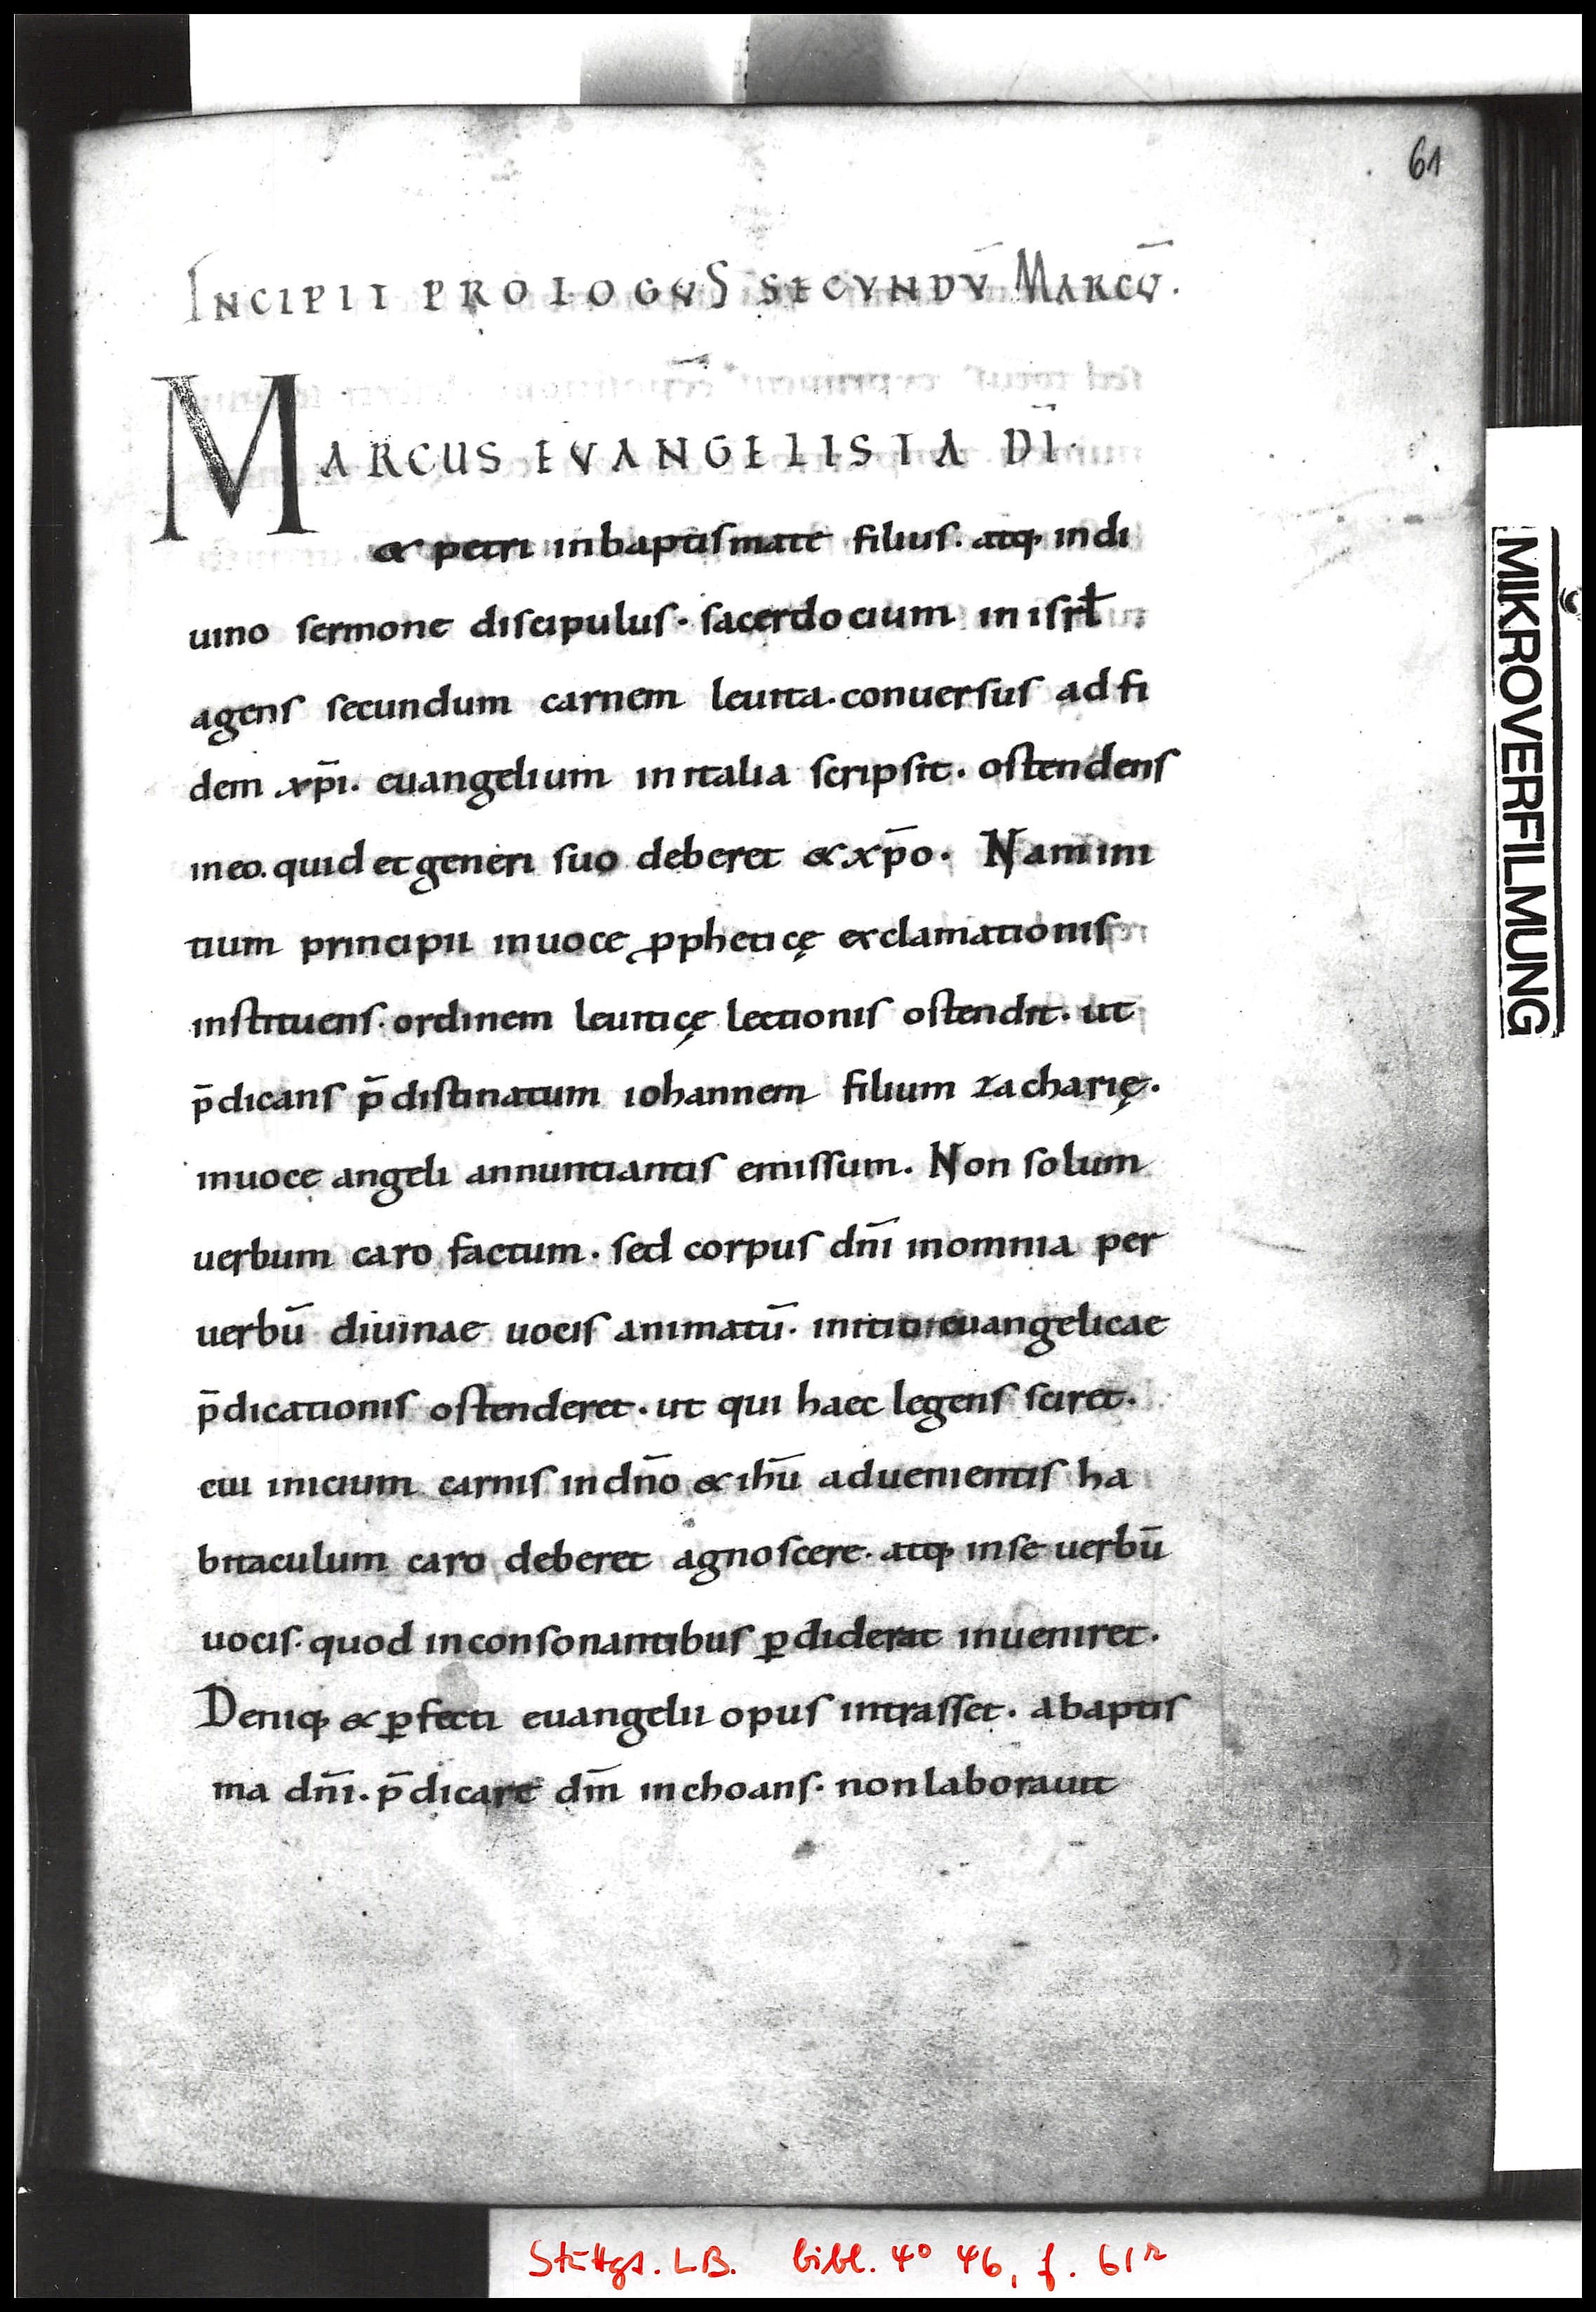 61
INCIPIT PROLOGUS SECVNDV̄ MARCV̄.
MARCUS EVANGELISTA DI̅.
& petri inbaptismate filius. atq; indi
uino sermone discipulus. sacerdocium in isrł
agens secundum carnem leuita. conuersus adfi
dem xp̄i. euangelium initalia scripsit. ostendens
ineo. quid etgeneri suo deberet & xp̄o. Nam ini
tium principii inuoce ꝓpheticę exclamationis
instituens. ordinem leuiticę lectionis ostendit. ut
p̄dicans p̄distinatum iohannem filium zacharię.
inuoce angeli annuntiantis emissum. Non solum
uerbum caro factum. sed corpus dn̄i inomnia per
uerbū diuinae uocis animatū. initio euangelicae
p̄dicationis ostenderet. ut qui haec legens sciret.
cui inicium carnis indn̄o & ihū aduenientis ha
bitaculum caro deberet agnoscere. atq; inse uerbū
uocis. quod inconsonantibus ꝑdiderat inueniret.
Deniq; & ꝑfecti euangelii opus intrasset. abaptis
ma dn̄i. p̄dicare dm̄ inchoans. nonlaborauit
MIKROVERFILMUNG
Stuttg. LB. bibl. 4° 46, f. 61r